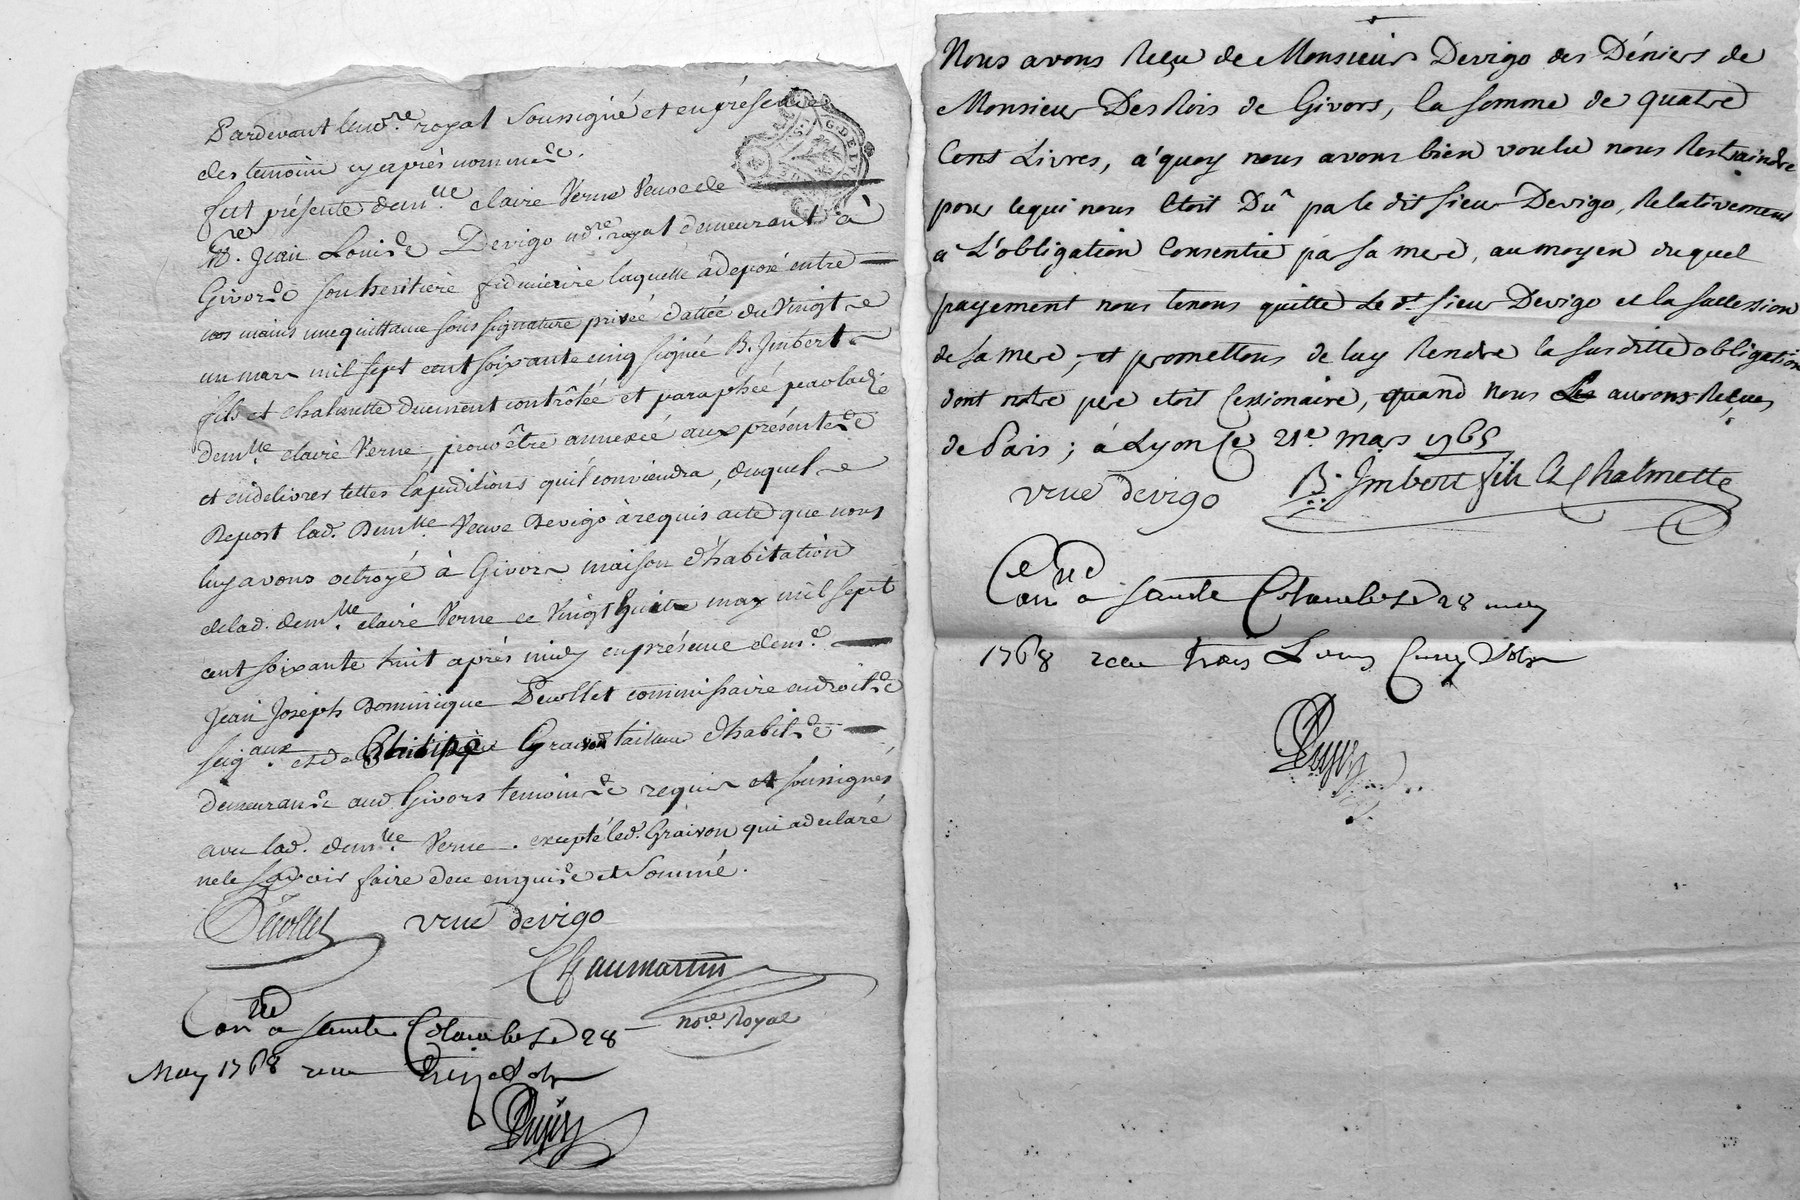 Pardevant le no.re royal soussigné et en présence
des temoins cy après nommés.
fut présente dem.lle claire Verne Veuve de
M.re Jean Louis Devigo no.re royal demeurant à
Givors son heritière fidiuciere laquelle a deposé entre
nos mains une quittance sous signature privée dattée du Vingt
un mars mil sept cent soixante cinq signée B. Imbert
fils et chalmette duement contrôlée et paraphée par lad.
dem.lle claire Verne, pour être annexée aux présentes
et en delivrer telles Expeditions qu'il conviendra, duquel
Depost lad. Dem.lle Veuve Devigo à requis acte que nous
luy avons octroyé à Givors maison d'habitation
de lad. dem.lle claire Verne ce Vingt huit may mil sept
cent soixante huit après midy en présence de m.e
Jean Joseph Dominique Decollet commissaire en droits
seig.aux et de Philippe Graivon tailleur d'habits
demeurans aud. Givors temoins requis et soussignés
avec lad. dem.lle Verne. excepté led. Graivon qui a declaré
ne le savoir faire de ce enquis et sommé.
Decollet veuve devigo
Chaumartin
no.re Royal
Con.lé a sainte Colombe le 28
May 1768 recu treize sols
G.DE LYON
Nous avons Reçu de Monsieur Devigo des Déniers de
Monsieur Des Rois de Givors, la somme de quatre
Cent Livres, a'quoy nous avons bien voulu nous Restraindre
pour ce qui nous Etoit Dû par le dit sieur Devigo, Relativement
a L'obligation Consentie par sa mere, au moyen duquel
payement nous tenons quitte Le d.t sieur Devigo et la succession
de sa mere, et promettons de luy Rendre la susditte obligation
dont notre pere etoit Cessionaire, quand nous Les aurons Reçues
de Paris; à Lyon le 21e mars 1765
veuve devigo B. Imbert fils & Chalmette
Con.lé a sainte Colombe le 28 may
1768 recu trois Livres Cinq sols